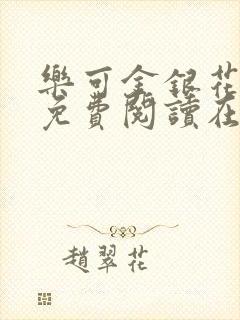 樂可金銀花
免費閱讀在
趙翠花